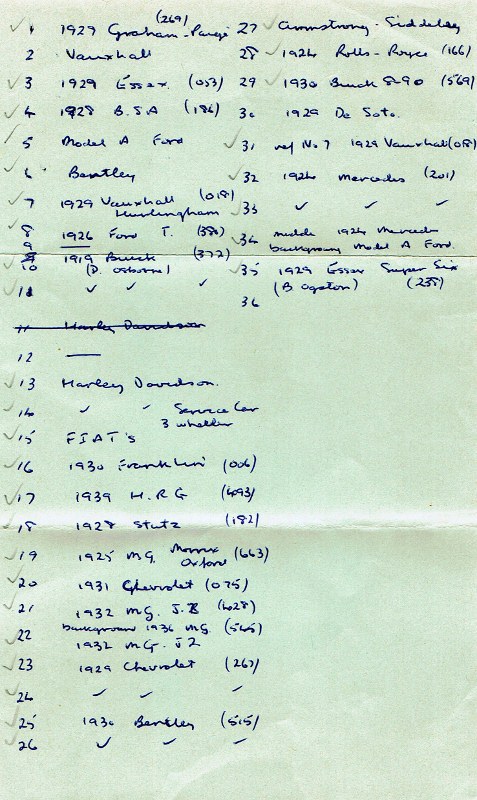 1 1929 Graham-Paige (269)
2 Vauxhall
3 1929 Essex (053)
4 1928 B.S.A (186)
5 Model A Ford
6 Bentley
7 1929 Vauxhall (018)
Hurlingham
8 1926 Ford T. (384)
9
10 1919 Buick (372)
(D. Osborne)
11 ✓ ✓ ✓
11 Harley Davidson
12 —
13 Harley Davidson.
14 ✓ ✓ Service Car
3 wheeler
15 FIAT's
16 1930 Franklin (006)
17 1939 H.R.G (493)
18 1928 Stutz (182)
19 1925 M.G. Morris Oxford (663)
20 1931 Chevrolet (075)
21 1932 M.G. J.2 (628)
22 background 1936 M.G. (545)
1932 M.G. J2
23 1929 Chevrolet (267)
24 ✓ ✓ ✓
25 1930 Bentley (515)
26 ✓ ✓ ✓
27 Armstrong-Siddeley
28 1924 Rolls-Royce (166)
29 1930 Buick 8-90 (569)
30 1929 De Soto.
31 ref No 7 1929 Vauxhall (018)
32 1924 Mercedes (201)
33 ✓ ✓ ✓
34 middle 1924 Mercedes
background Model A Ford.
35 1929 Essex Super Six
(B Ogston) (238)
36